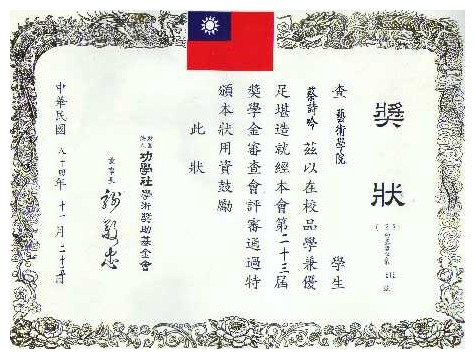 獎狀
查 藝術學院 學生
蔡詩吟 茲以在校品學兼優
足堪造就經本會第二十三屆
獎學金審查會評審通過特
頒本狀用資鼓勵
此狀
財團法人 功學社學術獎助基金會
董事長 謝敬忠
中華民國 八十四年 十一月 二十五日